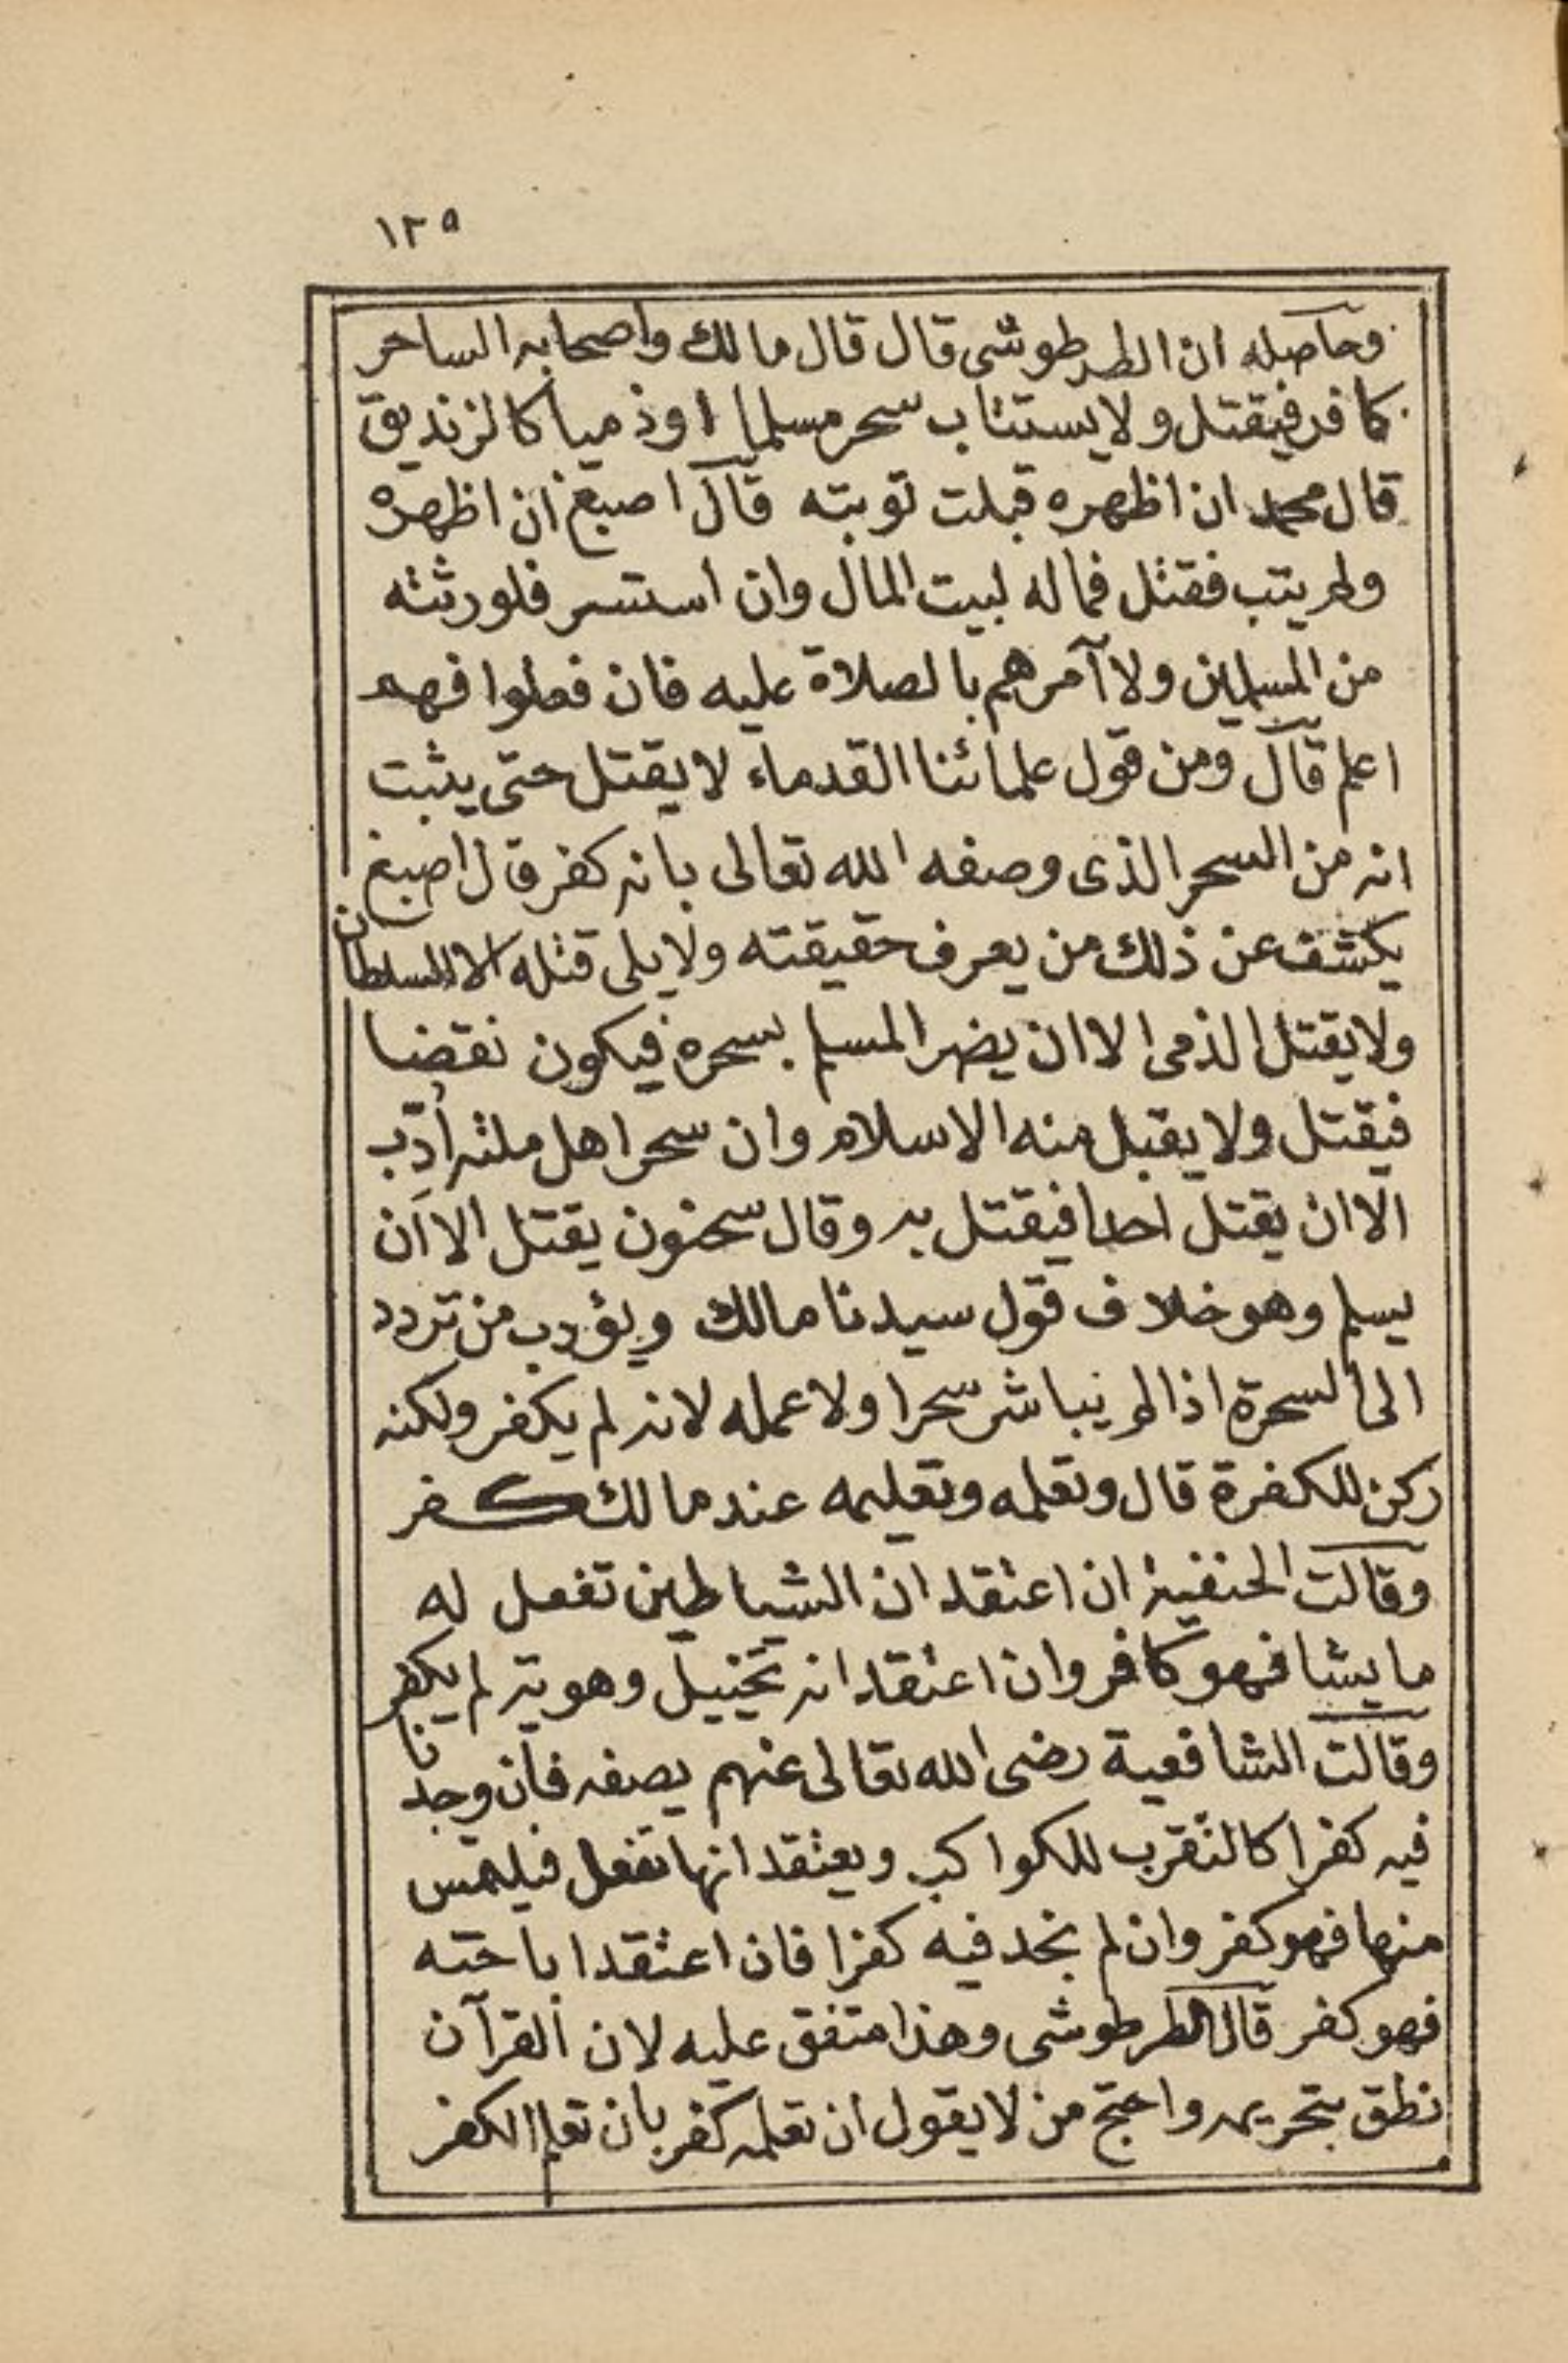 ١٢٥
وحاصله ان الطرطوشى قال قال مالك واصحابه الساحر
كافر فيقتل ولا يستتاب سحر مسلما اوذميا كالزنديق
قال محمد ان اظهره قبلت توبته قال اصبغ ان اظهره
ولم يتب فقتل فماله لبيت المال وان استسر فلورثته
من المسلمين ولا آمرهم بالصلاة عليه فان فعلوا فهم
اعلم قال ومن قول علمائنا القدماء لا يقتل حتى يثبت
انه من السحر الذى وصفه الله تعالى بانه كفر قال اصبغ
يكشف عن ذلك من يعرف حقيقته ولا يلى قتله الا السلطان
ولا يقتل الذمى الا ان يضر المسلم بسحره فيكون نقضا
فيقتل ولا يقبل منه الاسلام وان سحر اهل ملته أدّب
الا ان يقتل احدا فيقتل به وقال سحنون يقتل الا ان
يسلم وهو خلاف قول سيدنا مالك ويؤدب من تردد
الى السحرة اذا لم يباشر سحرا ولا عمله لانه لم يكفر ولكنه
ركن للكفرة قال وتعلمه وتعليمه عند مالك كفر
وقالت الحنفية ان اعتقد ان الشياطين تفعل له
ما يشا فهو كافر وان اعتقد انه تخييل وهويه لم يكفر
وقالت الشافعية رضى الله تعالى عنهم يصفه فان وجدنا
فيه كفرا كالتقرب للكواكب ويعتقد انها تفعل فيلتمس
منها فهو كفر وان لم نجد فيه كفرا فان اعتقد اباحته
فهو كفر قال الطرطوشى وهذا متفق عليه لان القرآن
نطق بتحريمه واحتج من لا يقول ان تعلمه كفر بان تعلم الكفر